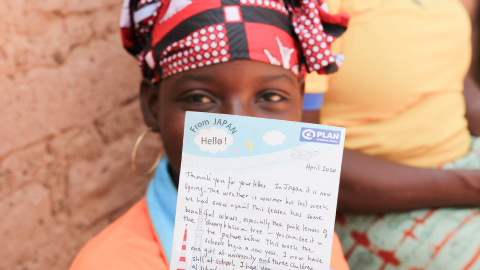 From JAPAN
Hello!
PLAN
April 2020
Thank you for your letter. In Japan it is now
spring. The weather is warmer but last week
we had snow again! This season has some
beautiful colours, especially the pink flowers of
the cherry blossom tree - you can see it in
the picture below. This week the
schools begin a new year. I now have
one girl at university and three children
still at school. I hope you